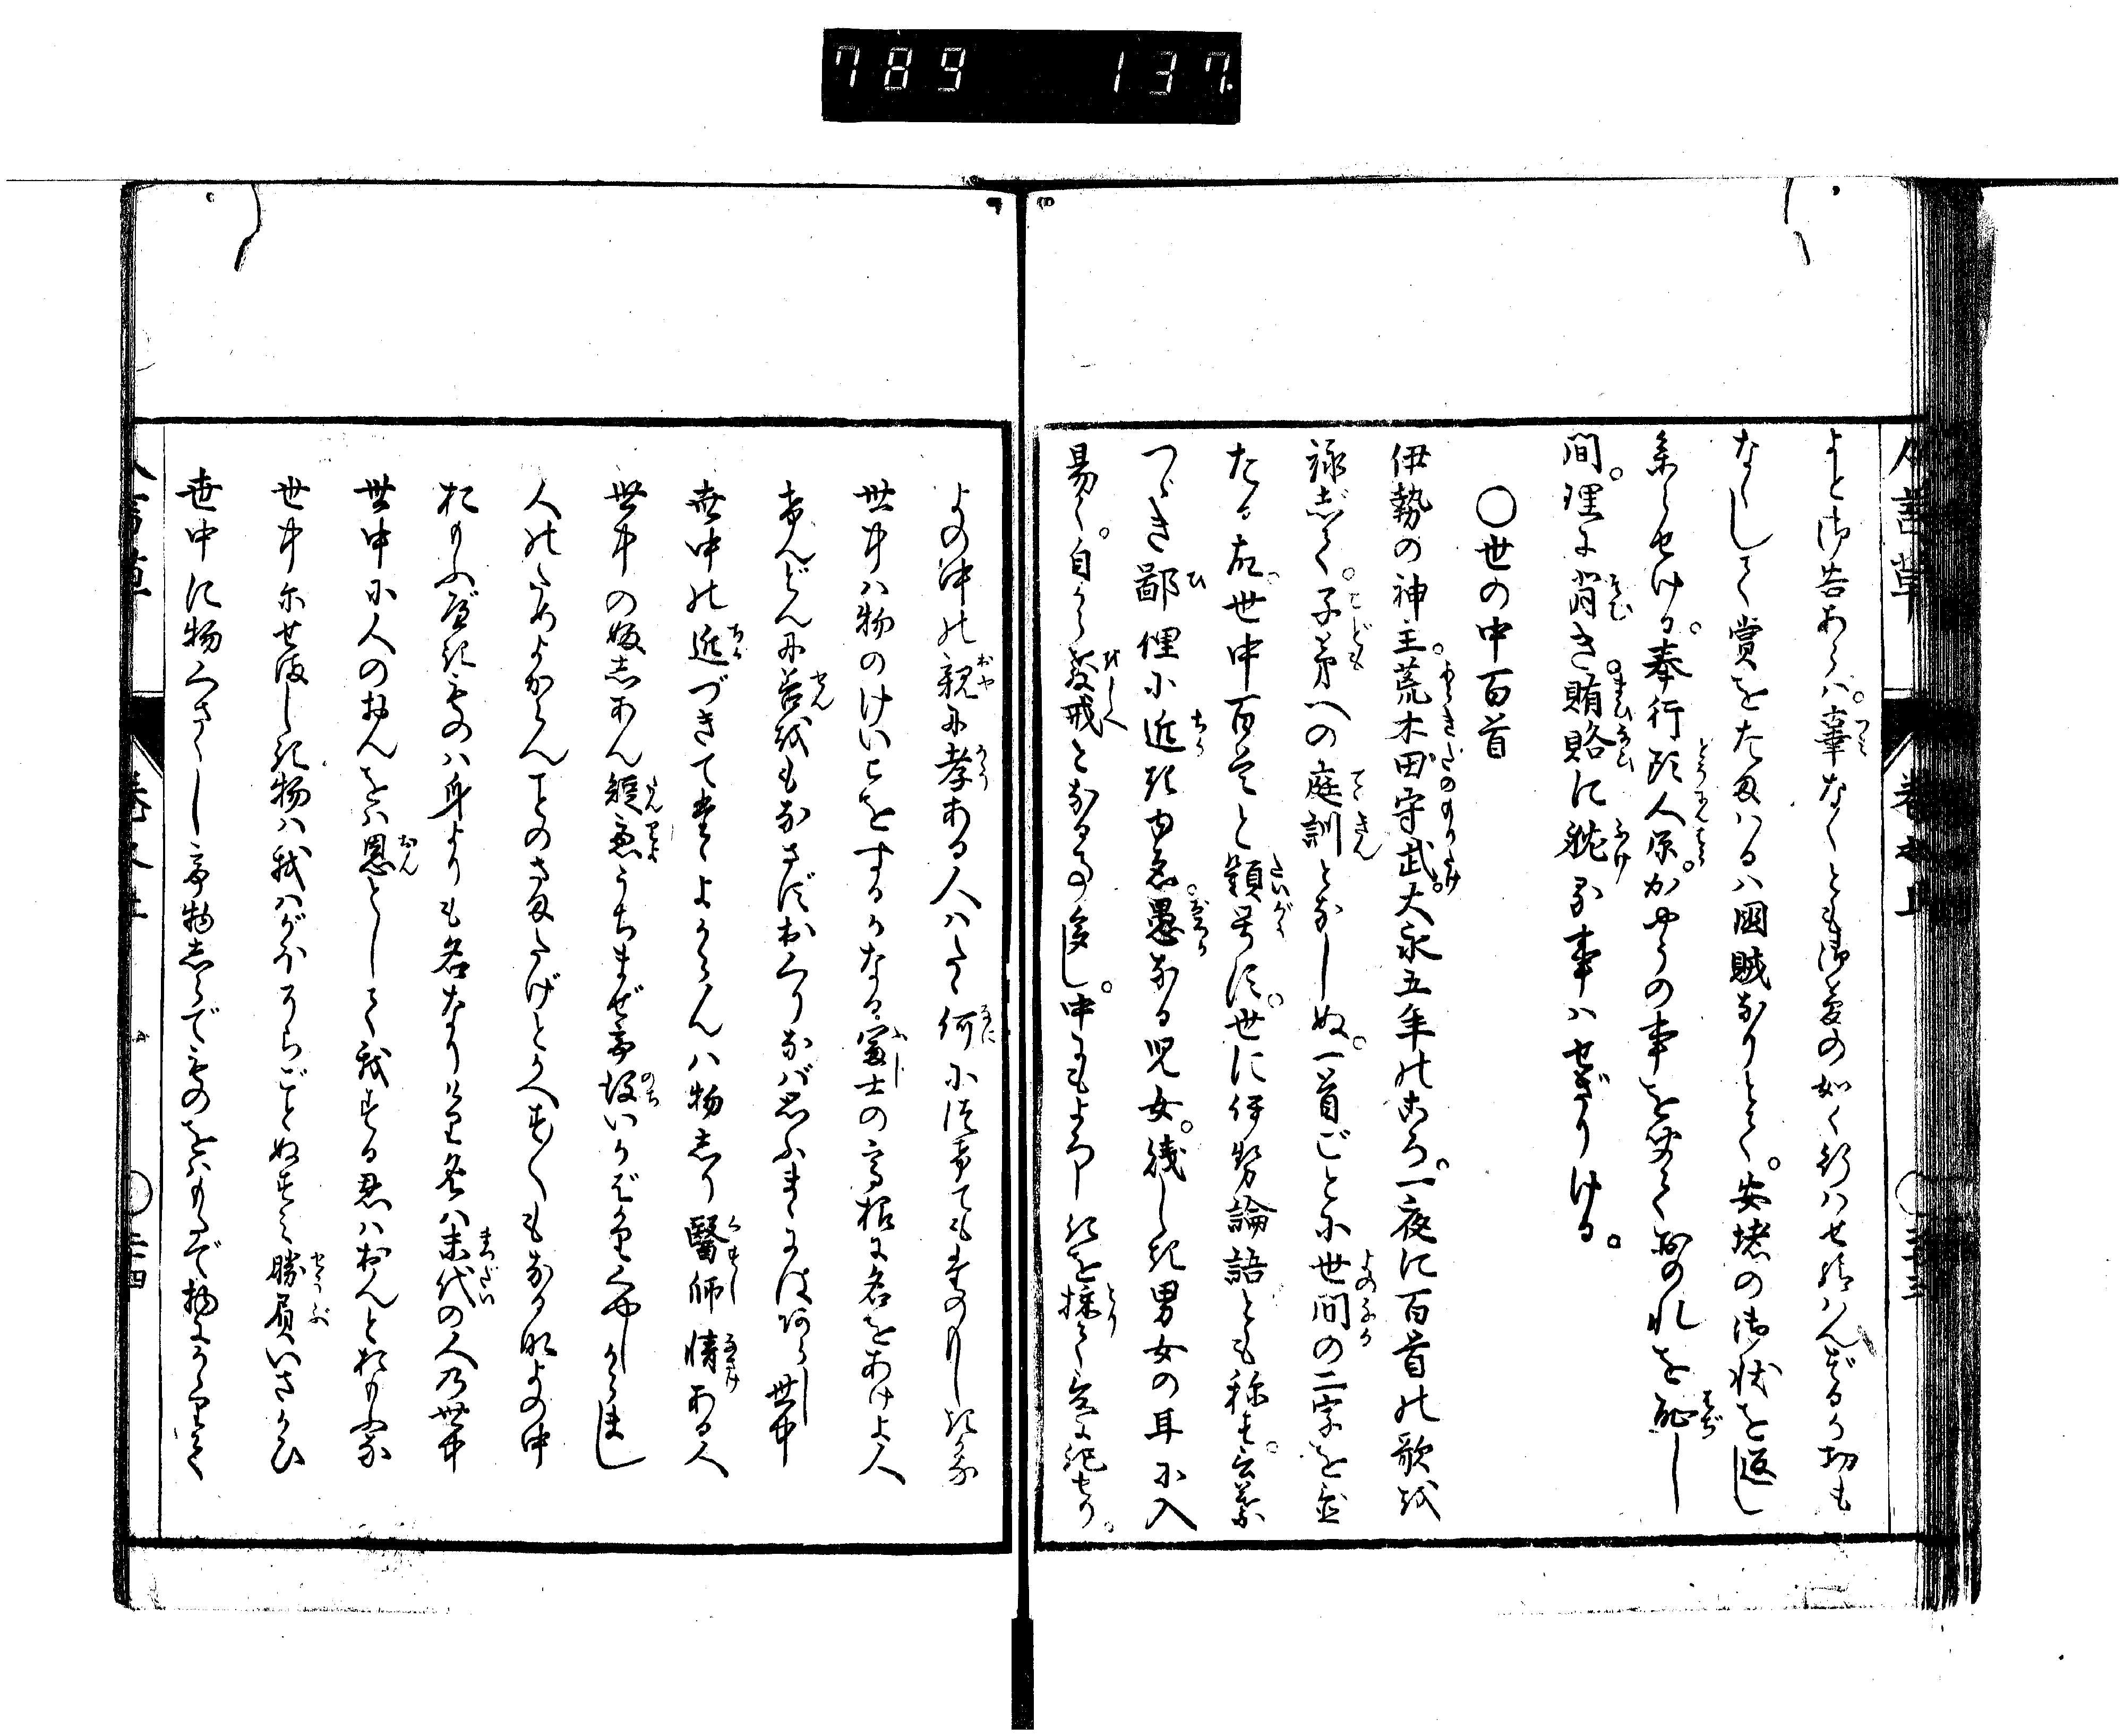 789 137
よと御告あらバ。辜なくとも御夢の如く行ハせ給ハんずるか勿も
なくして賞をたまハるハ国賊なりとて。安堵の御状を返し
参らせける。奉行頭人深。かやうの事を聞ておのれを恥し
間。理に背き。賄賂に耽る事ハせざりける。
○世の中百首
伊勢の神主。荒木田守武。大永五年のころ。一夜に百首の歌を
詠じて。子弟への庭訓となしぬ。一首ごとに世間の二字を置
たる故。世中百首と題号す。世に伊勢論語とも称す。言葉
つゞき鄙俚に近き内忽。愚なる児女。賤しき男女の耳に入
易く。自ら教戒となる事多し。中にもよろしきを採て爰に記せり。
よの中の親に孝ある人ハたゞ何につけてもたのもしきかな
世中ハ物のけいこをするかなる富士の高根に名をあけよ人
けんどんに善をもなさずおくりなバ思ふまゝにはあらし世中
世中の近づきてたゞよからんハ物しり醫師情ある人
世中の飯しあん短慮うちまぜて後いかばかりくやしからまし
人のためよからんことのさまたげとかへす〴〵もなるなよの中
おもふべきものハ身よりも名なりけり名ハ末代の人の世中
世中に人のおんをバ恩として我する恩ハおんとおもふな
世中にせばき物ハ我ハがほすらごとぬすミ勝負いさかひ
世中に物くさくして物しらでものをバもたで物にかゝりて